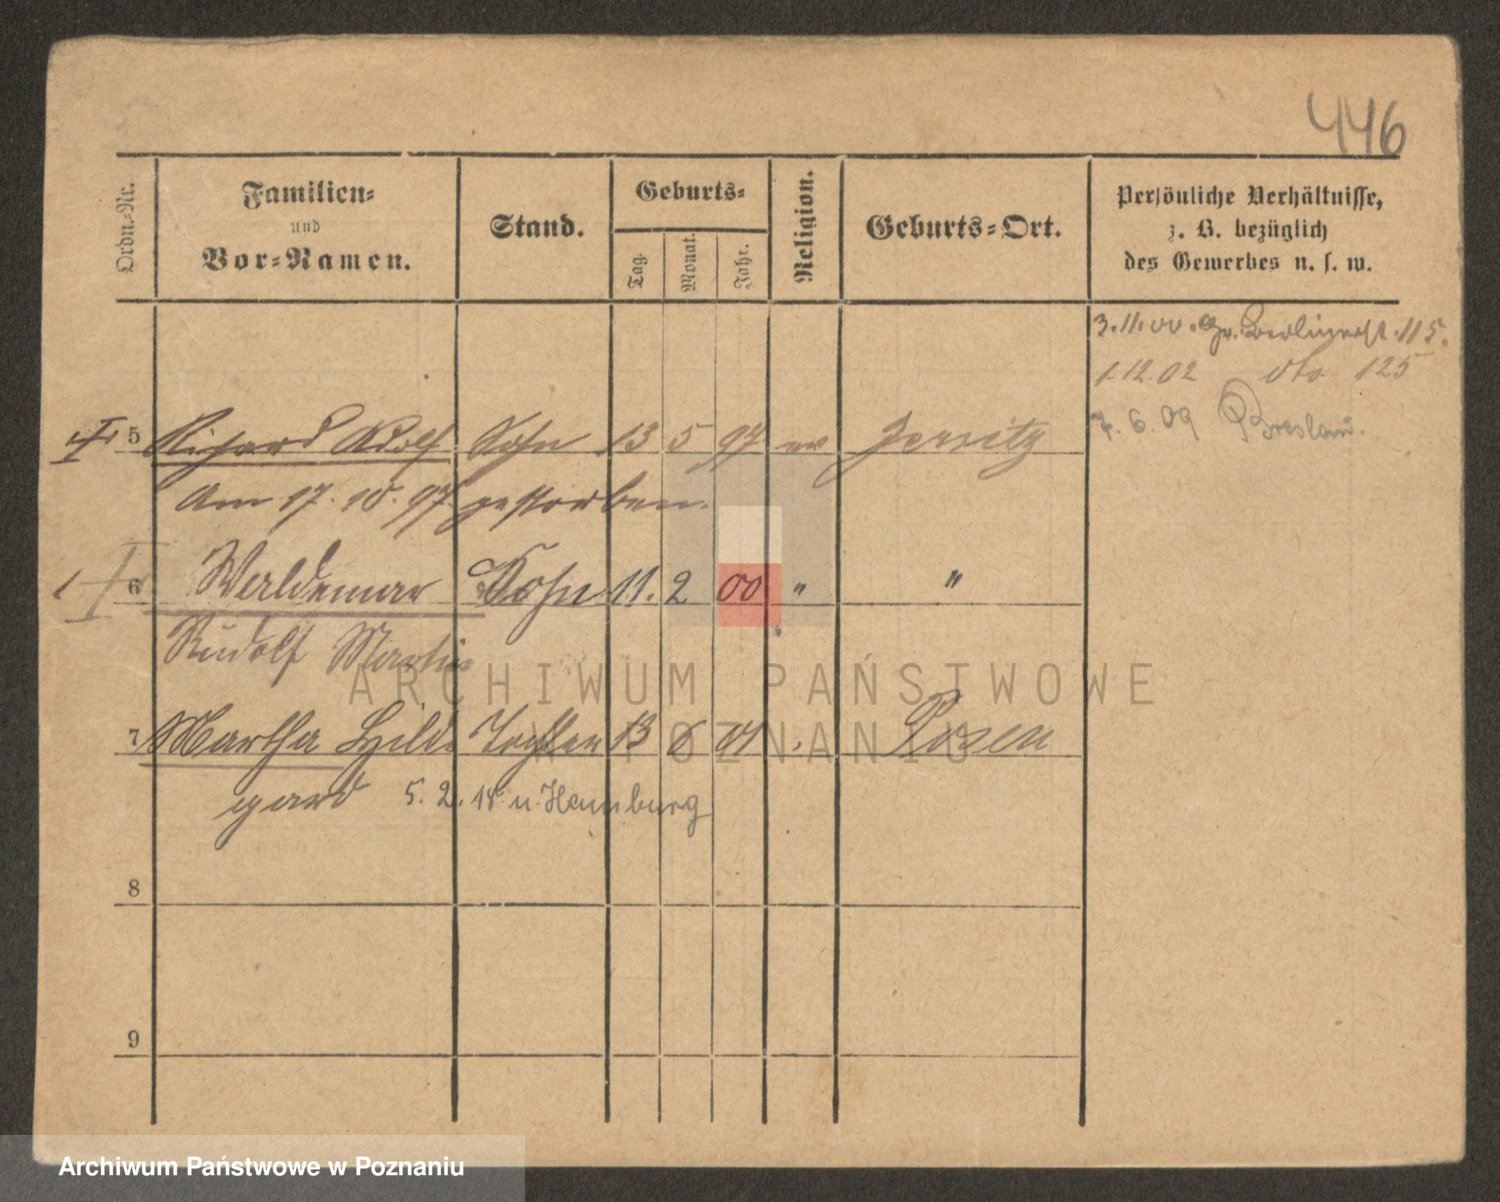 446
Ordn.-Nr.
Familien-
und
Vor-Namen.
Stand.
Geburts-
Tag.
Monat.
Jahr.
Religion.
Geburts-Ort.
Persönliche Verhältnisse,
z. B. bezüglich
des Gewerbes u. s. w.
3.11.00. Gr. Berlinerst. 115.
1.12.02 dto 125
7.6.09 Breslau.
5 Richard Adolf Sohn 13 5 97 ev Jersitz
am 17.10.97 gestorben.
6 Waldemar Sohn 11. 2 00 " "
Rudolf Martin
7 Martha Hilde Tochter 13 6 01 Posen
gard 5. 2. 18 n. Hamburg
8
9
ARCHIWUM PAŃSTWOWE
W POZNANIU
Archiwum Państwowe w Poznaniu